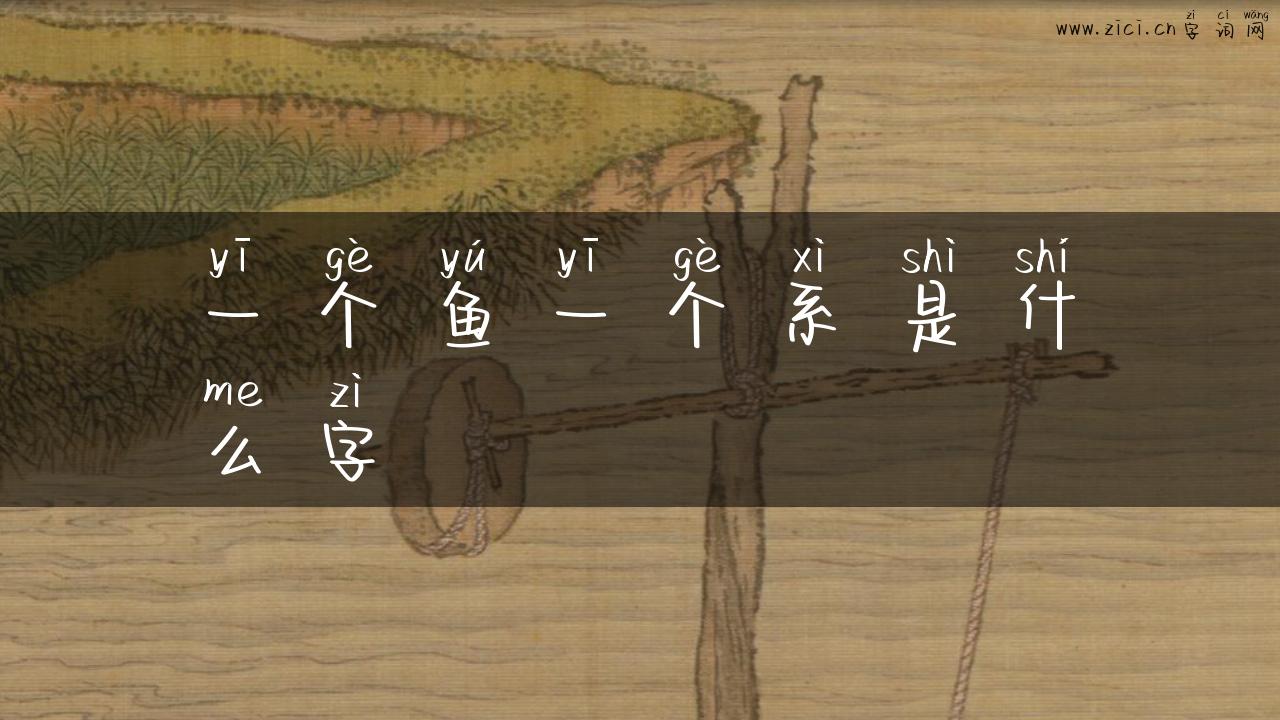 zì cí wǎng
www.zici.cn 字 词 网
yī gè yú yī gè xì shì shí
一 个 鱼 一 个 系 是 什
me zì
么 字